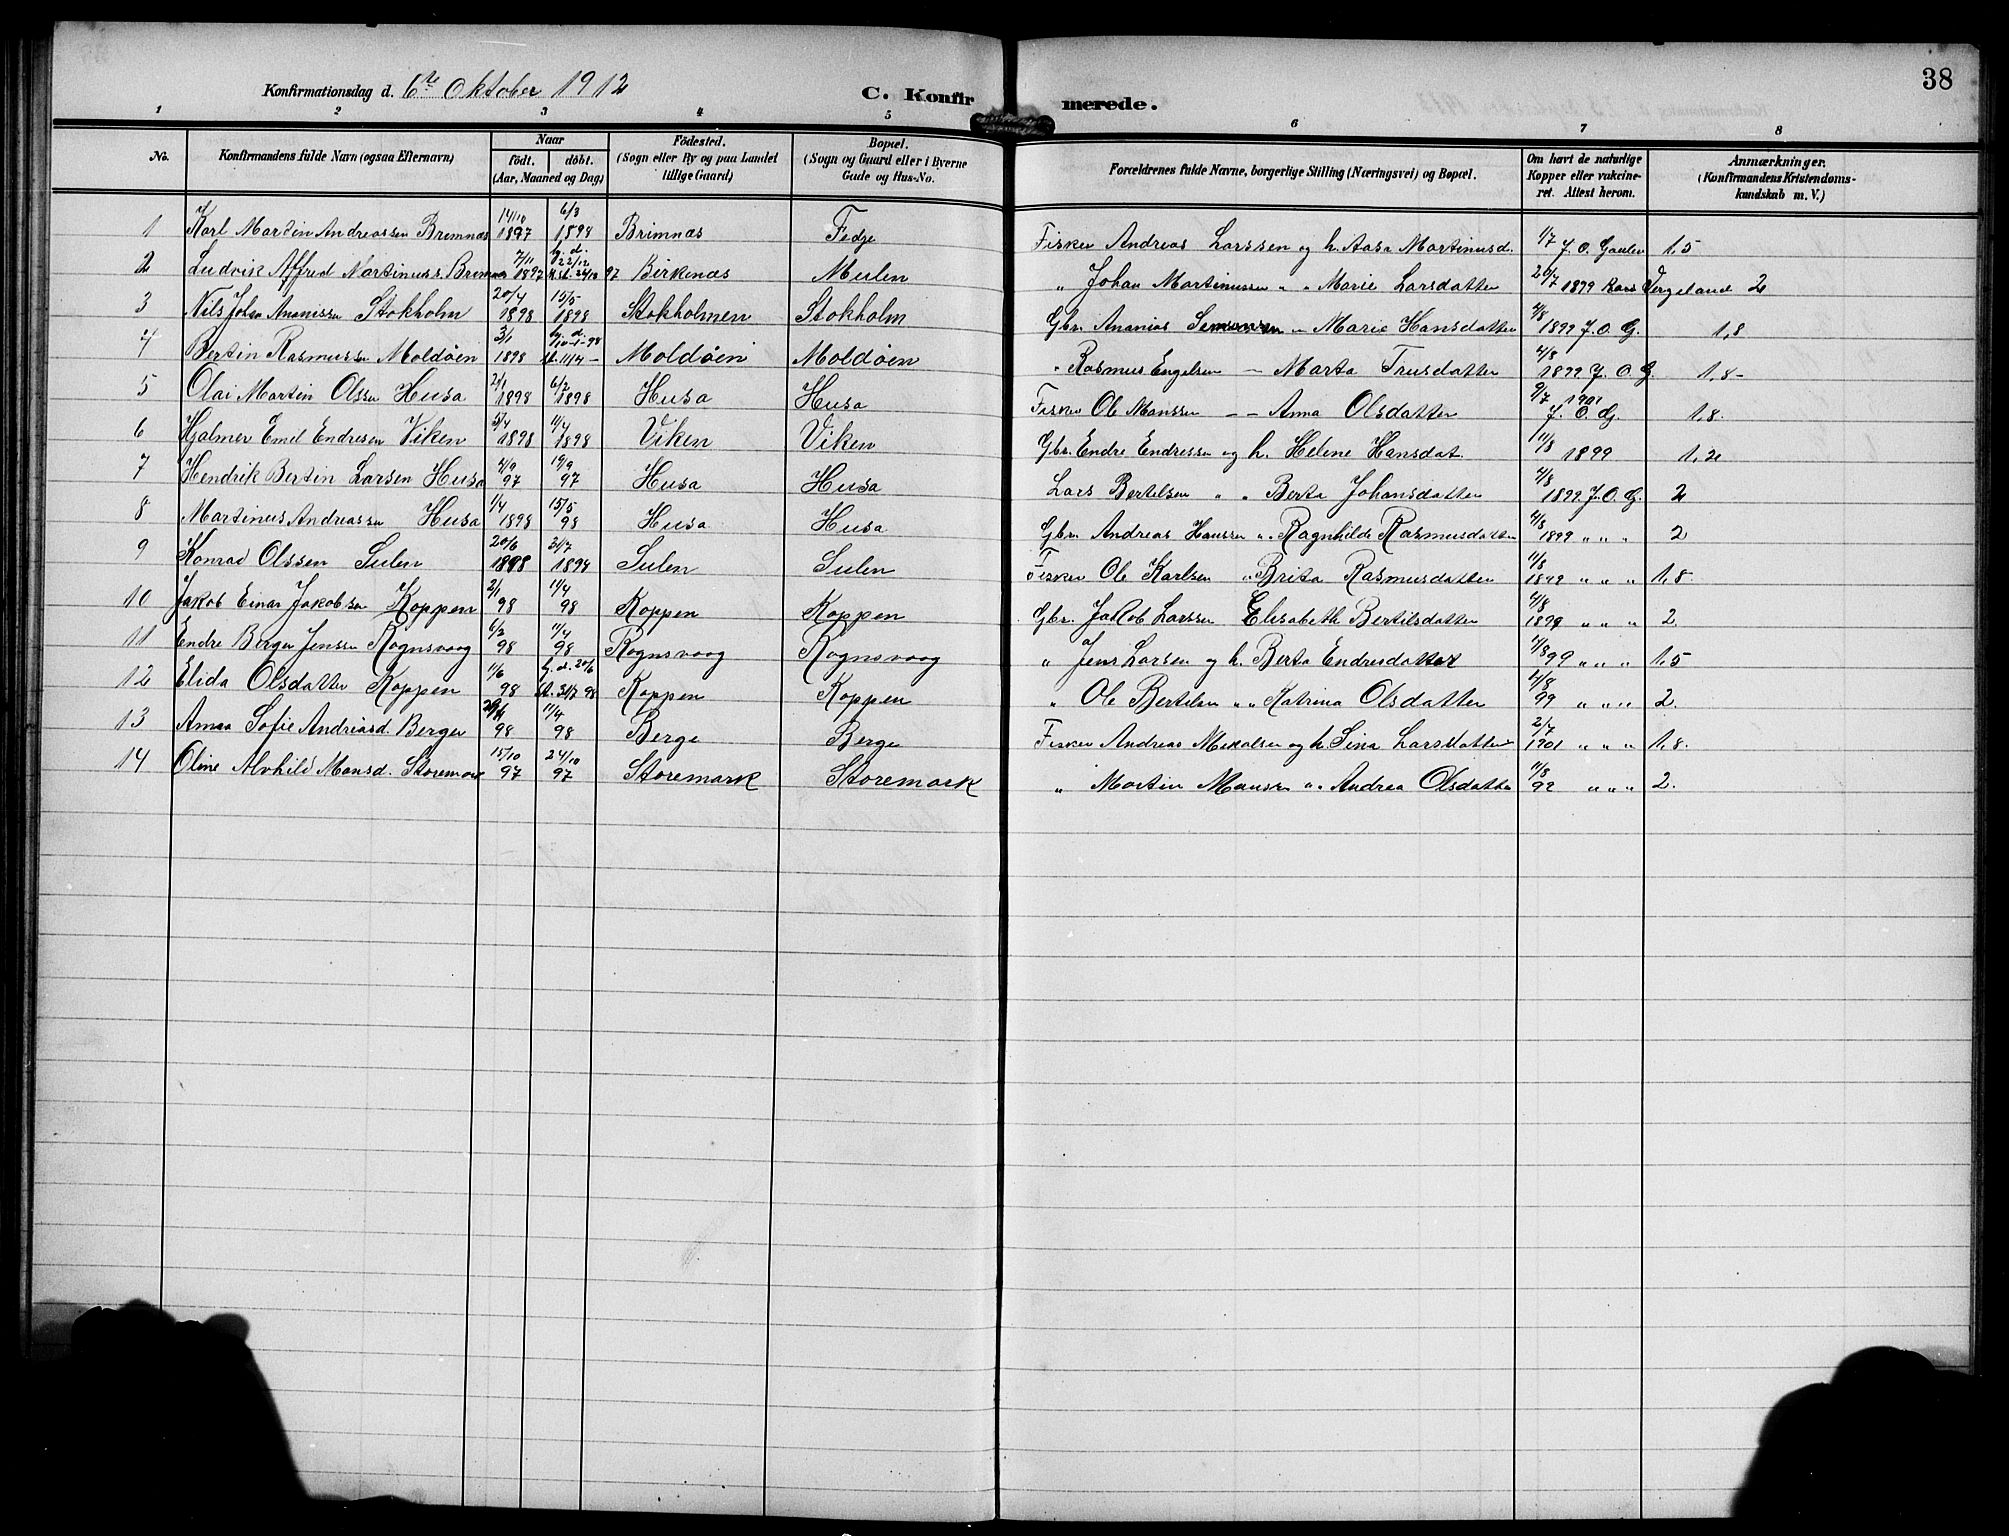 38
Konfirmationsdag d. 6te Oktober 1912
C. Konfirmerede.
1 2 3 4 5 6 7 8
No. Konfirmandens fulde Navn (ogsaa Efternavn) Naar födt. döbt. (Aar, Maaned og Dag) Födested. (Sogn eller By og paa Landet tillige Gaard) Bopæl. (Sogn og Gaard eller i Byerne Gade og Hus-No. Forældrenes fulde Navne, borgerlige Stilling (Næringsvei) og Bopæl. Om havt de naturlige Kopper eller vakcineret. Attest herom. Anmærkninger. (Konfirmandens Kristendomskundskab m. V.)
1 Karl Martin Andreassen Brimnæs 14/10 1897 6/3 1898 Brimnæs Fedje Fisker Andreas Larssen og h. Aasa Martinusd. 1/7 J. O. 1,5
2 Ludvik Alfred Martinuss. 7/11 1897 97 Birkenæs Mulen " Johan Martinussen " " Marie Larsdatter 20/7 1899 Lars Vergeland 2
3 Nils Johan Ananissen Stokholm 20/4 1898 15/5 1898 Stokholmen Stokholm Gbr. Ananias " Marie Hansdatter 4/8 1899 J. O. G. 1,8
4 Bertin Rasmussen Moldöen 3/1 1898 Moldöen Moldöen " Rasmus Engelsen — Marta Trusdatter 4/8 1899 J. O. G. 1,8-
5 Olai Martin Olssen Husa 2/1 1898 6/2 1898 Husa Husa Fisker Ole Monssen — — Anna Olsdatter 9/7 1901 J. O. G. 1,8.
6 Hjalmer Emil Endresen Viken 5/4 1898 11/4 1898 Viken Viken Gbr. Endre Endressen og h. Helene Hansdat. 11/8 1899 1,2
7 Hendrik Bertin Larsen Husa 4/9 97 19/9 97 Husa Husa Lars Bertelsen " " Berta Johansdatter 4/8 1899 J. O. G. 2
8 Martinus Andreassen Husa 1/4 1898 15/5 98 Husa Husa Gbr. Andreas Hanssen " " Ragnhilde Rasmusdatter 4/8 1899 " " " 2
9 Konrad Olssen Sulen 20/6 1898 31/7 1898 Sulen Sulen Fisker Ole Karlsen " Brita Rasmusdatter 11/8 1899 " " " 1,8
10 Jakob Einar Jakobsen Koppen 2/1 98 11/4 98 Koppen Koppen Gbr. Jakob Larssen Elisabeth Bertilsdatter 4/8 1899 " " " 2.
11 Endre Berger Jenssen Rognsvaag 6/2 98 11/4 98 Rognsvaag Rognsvaag " Jens Larsen og h. Berta Endresdatter 11/8 99 " " " 1,5
12 Elida Olsdatter Koppen 11/6 98 hj. d. 20/6 st. 31/7 98 Koppen Koppen " Ole Bertelsen " " Katrina Olsdatter 4/8 99 " " " 2.
13 Anna Sofie Andreasd. Berge 98 11/4 98 Berge Berge Fisker Andreas Mikalsen og h. Sina Larsdatter 2/7 1901 " " " 1,8.
14 Oline Alvhild Monsd. Storemark 15/10 97 24/10 97 Storemark Storemark " Martin Monsen " " Andrea Olsdatter 11/8 99 " " " 2.